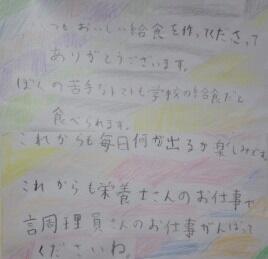 いつもおいしい給食を作ってくださって
ありがとうございます。
ぼくの苦手なトマトも学校の給食だと
食べられます。
これからも毎日何が出るか楽しみです。
これからも栄養士さんのお仕事や
調理員さんのお仕事がんばって
くださいね。